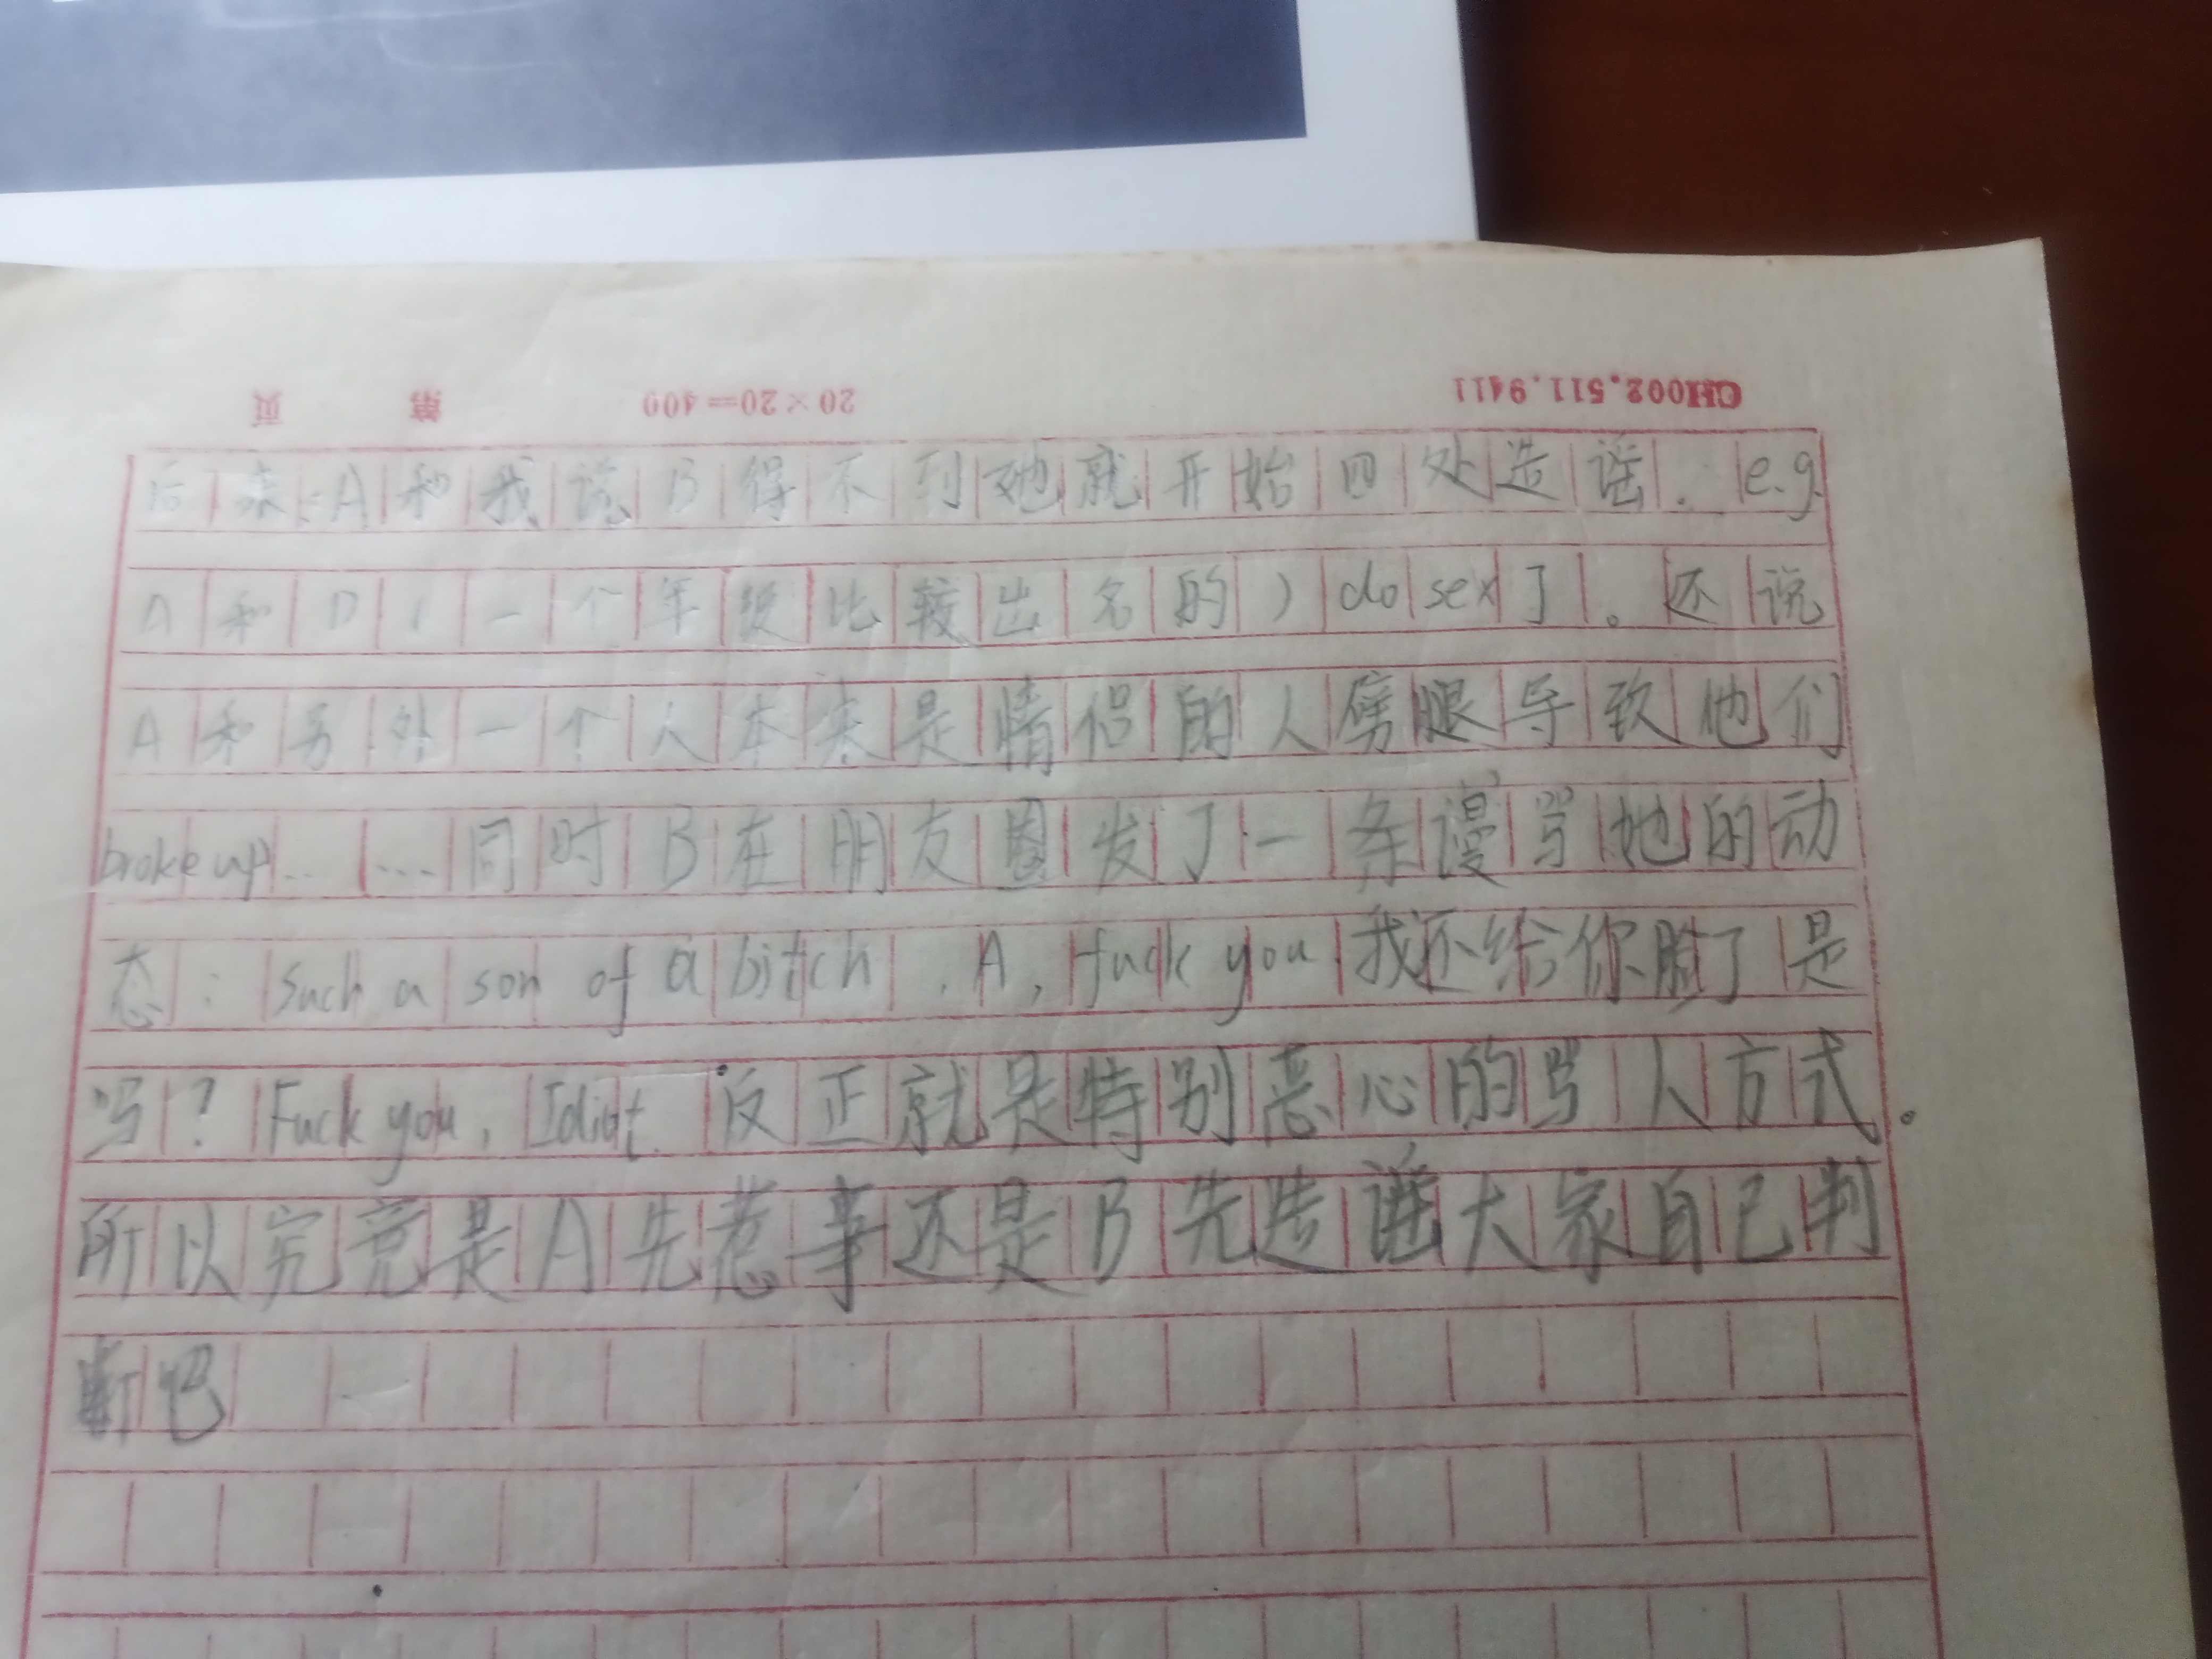 CH002.511.9411
20×20=400
第 页
后来:A和我说B得不到她就开始四处造谣. e.g.
A和D(一个年级比较出名的)do sex了。还说
A和另外一个人本来是情侣的人劈腿导致他们
broke up……同时B在朋友圈发了一条谩骂她的动
态: Such a son of a bitch. A, fuck you.我还给你脸了是
吗? Fuck you, Idiot. 反正就是特别恶心的骂人方式。
所以究竟是A先惹事还是B先造谣大家自己判
断吧